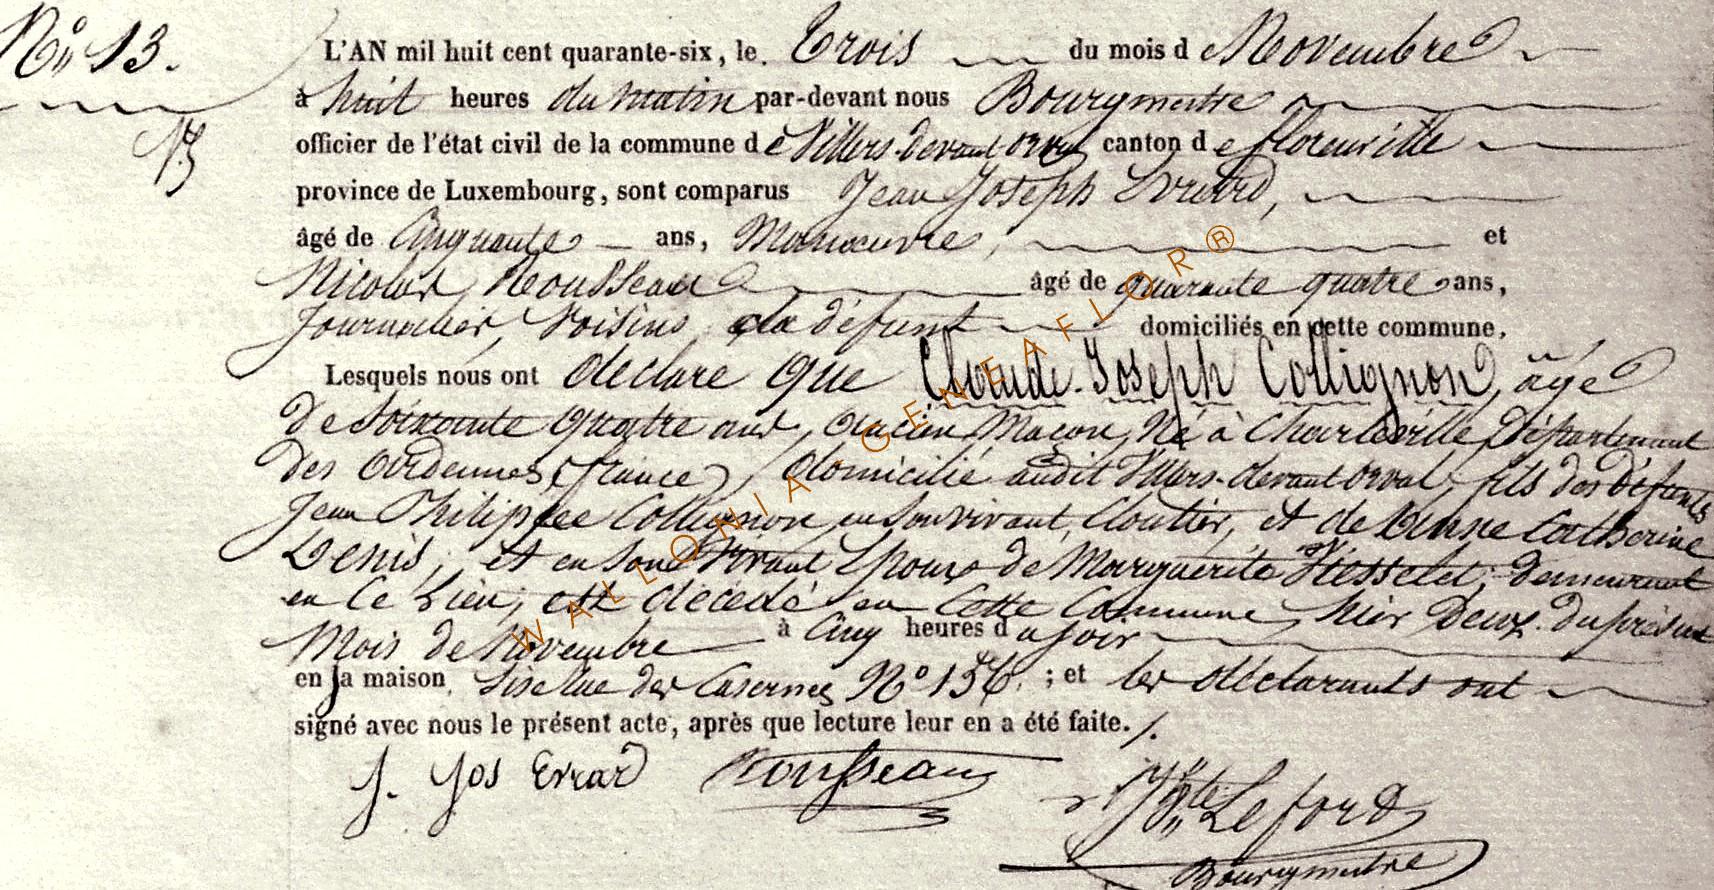 N° 13.
L'AN mil huit cent quarante-six, le Trois du mois de Novembre
à huit heures du matin par-devant nous Bourgmestre
officier de l'état civil de la commune de Villers-devant orval canton de florenville
province de Luxembourg, sont comparus Jean Joseph Evrard,
âgé de Cinquante ans, Manœuvre, et
Nicolas Rousseau âgé de quarante quatre ans,
Journalier, Voisins du défunt domiciliés en cette commune,
Lesquels nous ont déclaré que Claude-Joseph Collignon, âgé
de Soixante quatre ans, ancien Maçon, Né à Charleville, Département
des ardennes (france), domicilié audit Villers-devant orval, fils des défunts
Jean Philippe Collignon en son vivant, Cloutier, et de anne Catherine
Denis, et en son Vivant Epoux de Marguerite Hesselet, demeurant
en Ce Lieu, est décédé en Cette Commune, hier Deux du présent
Mois de Novembre à Cinq heures du soir
en la maison sise rue des Casernes N° 156. ; et les déclarants ont
signé avec nous le présent acte, après que lecture leur en a été faite. /.
J. Jos Evrard Rousseau
Lefort
Bourgmestre
WALLONIA - GENEAFLOR®